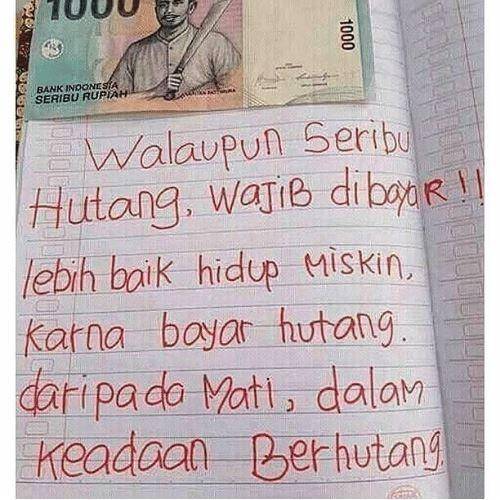 1000
1000
BANK INDONESIA
SERIBU RUPIAH
Walaupun Seribu
Hutang, WAJIB dibayaR!!
lebih baik hidup Miskin,
Karna bayar hutang.
daripada Mati, dalam
Keadaan Berhutang.